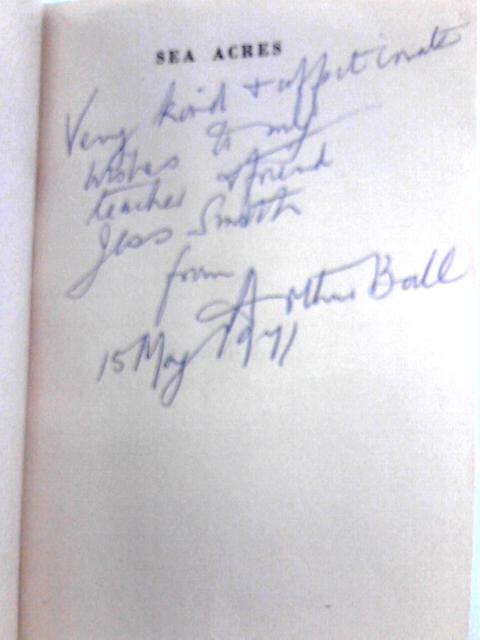 SEA ACRES
Very kind + affectionate
wishes to my
teacher & friend
Jess Smith
from Arthur Ball
15 May 1971